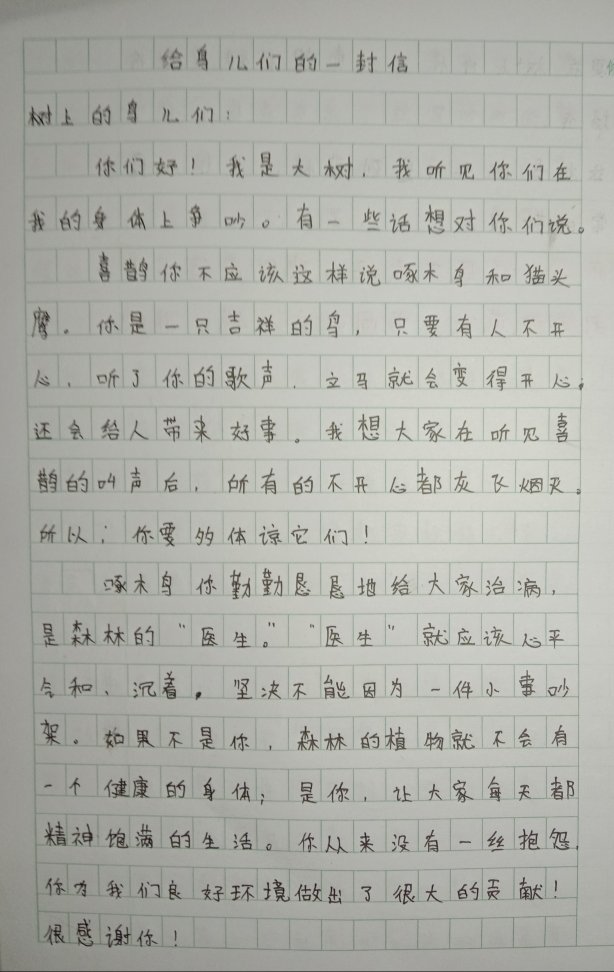 给鸟儿们的一封信
树上的鸟儿们：
你们好！我是大树，我听见你们在
我的身体上争吵。有一些话想对你们说。
喜鹊你不应该这样说啄木鸟和猫头
鹰。你是一只吉祥的鸟，只要有人不开
心，听了你的歌声，立马就会变得开心，
还会给人带来好事。我想大家在听见喜
鹊的叫声后，所有的不开心都灰飞烟灭。
所以；你要多体谅它们！
啄木鸟你勤勤恳恳地给大家治病，
是森林的“医生。”“医生”就应该心平
气和、沉着。坚决不能因为一件小事吵
架。如果不是你，森林的植物就不会有
一个健康的身体；是你，让大家每天都
精神饱满的生活。你从来没有一丝抱怨，
你为我们良好环境做出了很大的贡献！
很感谢你！